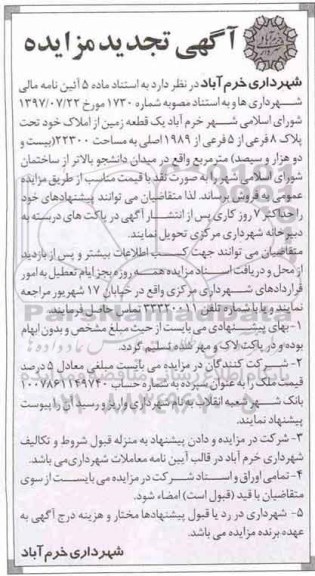 آگهی تجدید مزایده
شهرداری خرم آباد در نظر دارد به استناد ماده ۵ آئین نامه مالی
شهرداری ها و به استناد مصوبه شماره ۱۷۳۰ مورخ ۱۳۹۷/۰۷/۲۲
شورای اسلامی شهر خرم آباد یک قطعه زمین از املاک خود تحت
پلاک ۸ فرعی از ۵ فرعی از ۱۹۸۹ اصلی به مساحت ۲۲۳۰۰ (بیست و
دو هزار و سیصد) مترمربع واقع در میدان دانشجو بالاتر از ساختمان
شورای اسلامی شهر را به صورت نقد با قیمت مناسب از طریق مزایده
عمومی به فروش برساند. لذا متقاضیان می توانند پیشنهادهای خود
را حداکثر ۷ روز کاری پس از انتشار آگهی در پاکت های دربسته به
دبیرخانه شهرداری مرکزی تحویل نمایند.
متقاضیان می توانند جهت کسب اطلاعات بیشتر و پس از بازدید
از محل و دریافت اسناد مزایده همه روزه بجز ایام تعطیل به امور
قراردادهای شهرداری مرکزی واقع در خیابان ۱۷ شهریور مراجعه
نمایند و یا با شماره تلفن ۰۱-۳۳۳۲۰ تماس حاصل فرمایند.
۱- بهای پیشنهادی می بایست از حیث مبلغ مشخص و بدون ابهام
بوده و در پاکت لاک و مهر شده تسلیم گردد.
۲- شرکت کنندگان در مزایده می بایست مبلغی معادل ۵ درصد
قیمت ملک را به عنوان سپرده به شماره حساب ۱۰۰۷۸۶۱۱۴۹۷۴۰
بانک شهر شعبه انقلاب به نام شهرداری واریز و رسید آن را پیوست
پیشنهاد نمایند.
۳- شرکت در مزایده و دادن پیشنهاد به منزله قبول شروط و تکالیف
شهرداری خرم آباد در قالب آیین نامه معاملات شهرداری می باشد.
۴- تمامی اوراق و اسناد شرکت در مزایده می بایست از سوی
متقاضیان با قید (قبول است) امضاء شود.
۵- شهرداری در رد یا قبول پیشنهادها مختار و هزینه درج آگهی به
عهده برنده مزایده می باشد.
شهرداری خرم آباد